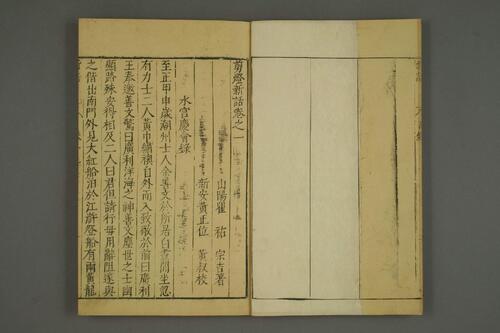 剪燈新話卷之一
山陽瞿祐宗吉著
新安黃正位黃叔校
水宮慶會錄
至正甲申歲潮州士人余善文於所居白晝閒坐忽
有力士二人黃巾繡襖自外而入致敬於前曰廣利
王奉邀善文驚曰廣利洋海之神善文塵世之士幽
顯路殊安得相及二人曰君但請行毋用辭阻遂與
之偕出南門外見大紅船泊於江滸登船有兩黃龍